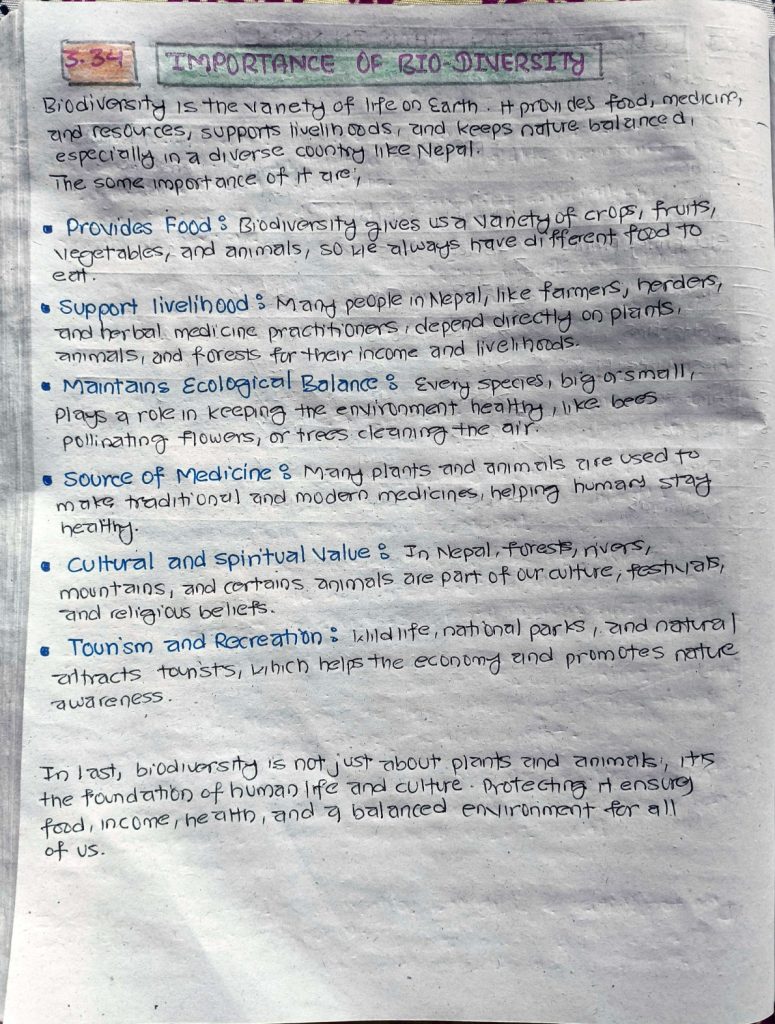 3.34 IMPORTANCE OF BIO-DIVERSITY
Biodiversity is the variety of life on Earth. It provides food, medicine,
and resources, supports livelihoods, and keeps nature balanced,
especially in a diverse country like Nepal.
The some importance of it are;
• Provides Food : Biodiversity gives us a variety of crops, fruits,
vegetables, and animals, so we always have different food to
eat.
• Support livelihood : Many people in Nepal, like farmers, herders,
and herbal medicine practitioners, depend directly on plants,
animals, and forests for their income and livelihoods.
• Maintains Ecological Balance : Every species, big or small,
plays a role in keeping the environment healthy, like bees
pollinating flowers, or trees cleaning the air.
• Source of Medicine : Many plants and animals are used to
make traditional and modern medicines, helping humans stay
healthy.
• Cultural and Spiritual Value : In Nepal, forests, rivers,
mountains, and certains animals are part of our culture, festivals,
and religious beliefs.
• Tourism and Recreation : Wildlife, national parks, and natural
attracts tourists, which helps the economy and promotes nature
awareness.
In last, biodiversity is not just about plants and animals, it's
the foundation of human life and culture. Protecting it ensures
food, income, health, and a balanced environment for all
of us.